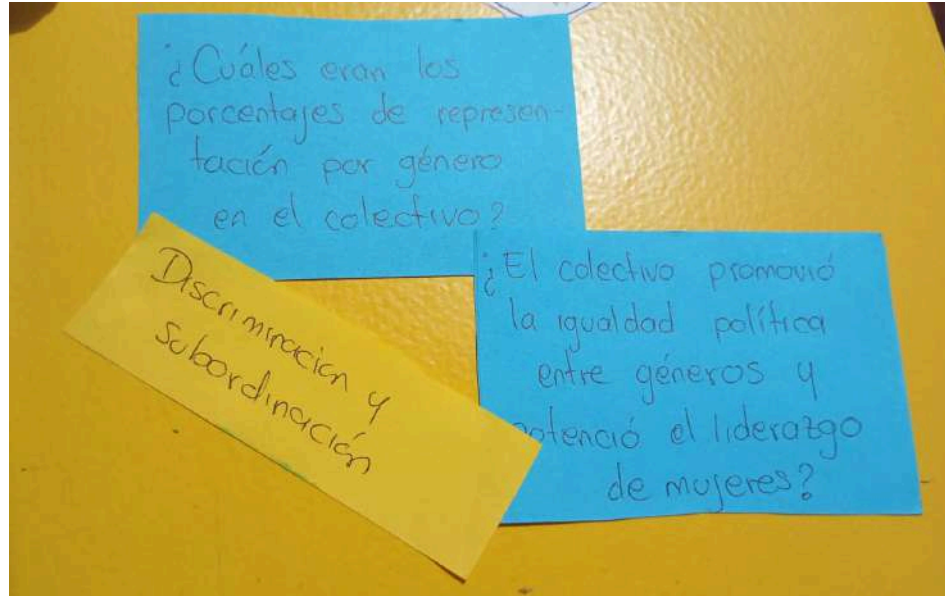 ¿Cuáles eran los
porcentajes de represen-
tación por género
en el colectivo?
Discriminacion y
subordinación
¿El colectivo promovió
la igualdad política
entre géneros y
potenció el liderazgo
de mujeres?